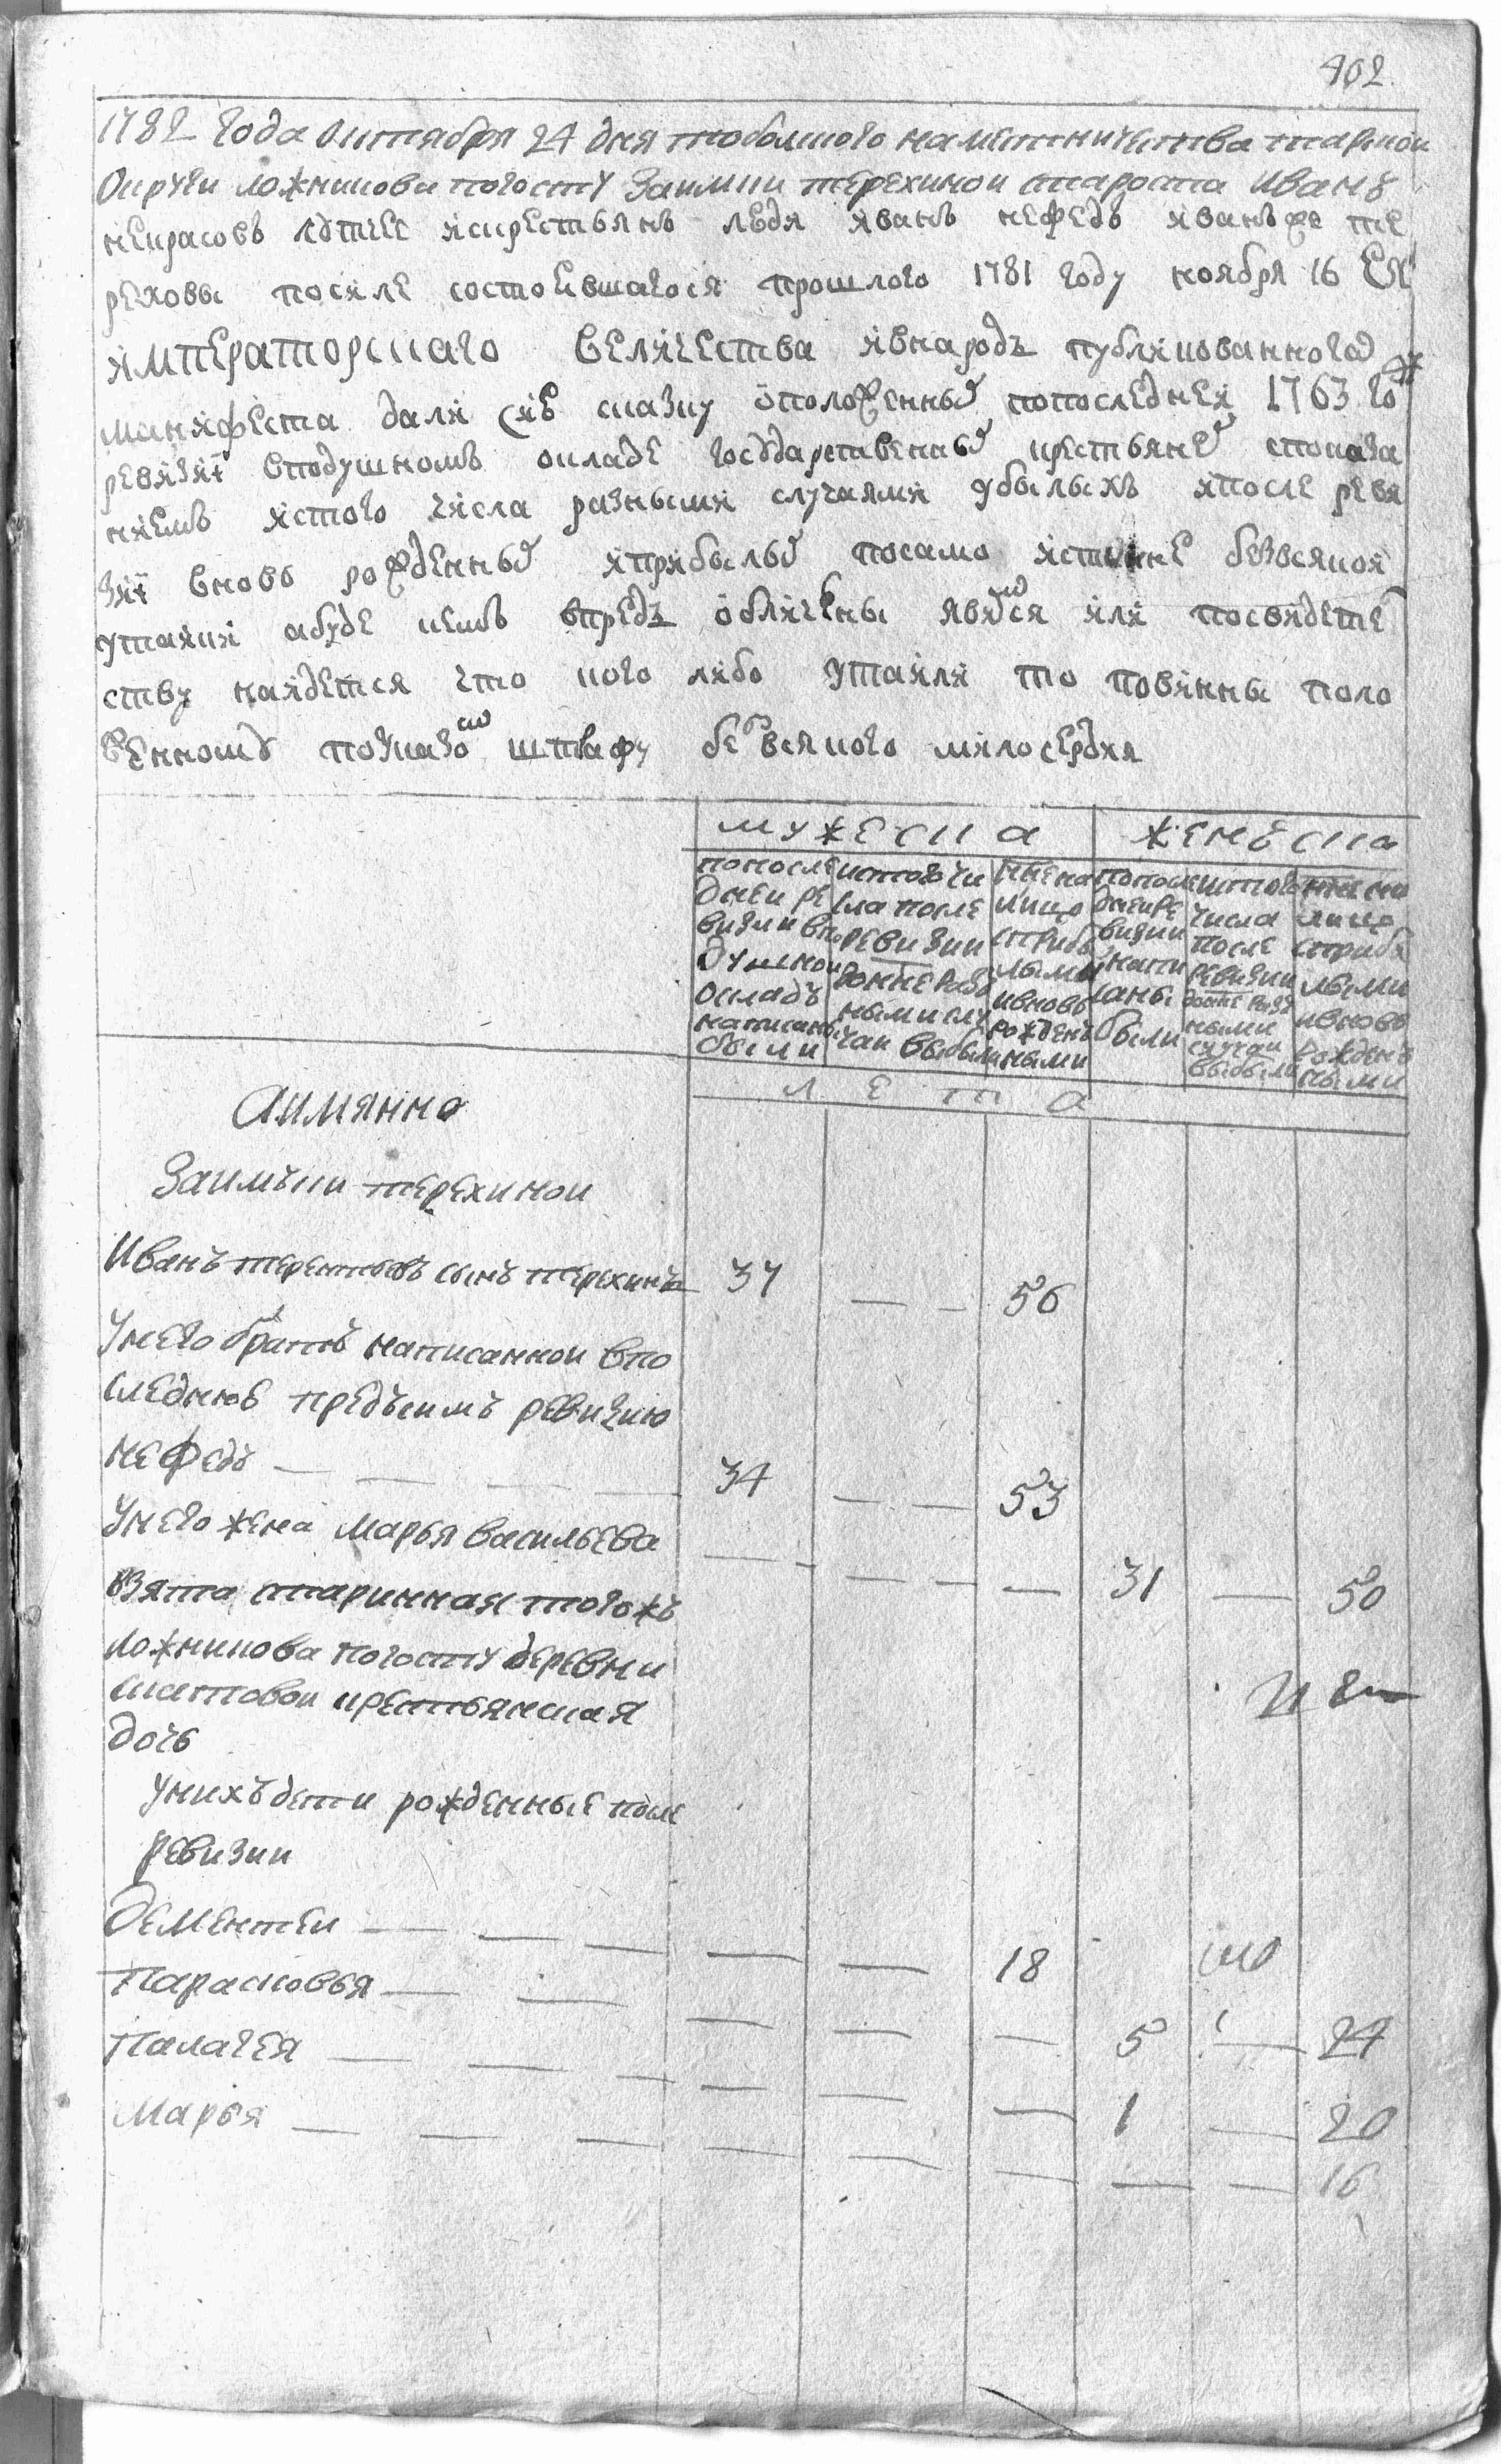 402
1782 Года октября 24 дня тобольского наместничества тарской
Округи ложникова погосту Заимки терехиной староста Иванъ
некрасовъ лутчее искрестьянъ людя иванъ нефедъ иванъ же те
реховы посиле состоевшагося прошлого 1781 году ноября 16 ея
императорскаго величества ивнародъ публикованного
манифеста дали сие сказку оположенныхъ попоследней 1763 го
ревизиі вподушномъ окладе государственыхъ крестьянехъ споказа
ниемъ истого числа разными случаями убылыхъ ипосле реви
зиї вновь рожденныхъ иприбылыхъ посамо истинне безвсякой
утайки абуде кемъ впредь обличены явимся или посвидете
ству найдется что кого либо утаили то повинны поло
женному поуказомъ штрафу безвсякого милосердия
мужеска женеска
попосле дней ре визии впо душной окладъ написаны были
истого чи сла после ревизии донне разными случаи выбыли
ныне на лицо сприбылыми ивновь рожденными
попосле дней ре визии написаны были
истого числа после ревизии донне разными случаи выбыли
ныне на лицо сприбылыми ивновь рожденными
лета
Аимянно
Заимъки терехиной
Иванъ терентьевъ сынъ терехинъ 37 — — 56
Унего братъ написанной впо
следнюе предъсимъ ревизию
нефедъ — — — — 34 — — 53
Унего жена Марья васильева — — — — — 31 — 50
взята старинная тогожъ
ложникова погосту деревни
скатовой крестьянская
дочь
Унихъ дети рожденные после
ревизии
Дементей — — — — — 18
Парасковья — — — — — 5 — 24
Палагея — — — — — — 1 — 20
Марья — — — — — — — — 16